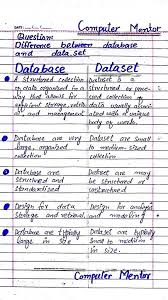 Computer Mentor
Question:
Difference between database
and data set
Database
Dataset
A structured collection
of data organized in a
way that allows for
efficient storage, retrieval
and management
Dataset is a
structured or
collection of
data usually
ated with a unique
body of work.
Database are very
large, organized
collection
Dataset are small
to medium-sized
collection
Database are
structured or
standardized
Dataset may
be structured or
unstructured
Design for data
storage and retrieval
Design for analysis
and modeling
Database are typically
large in size
Dataset are typically
small to medium
in size.
Computer Mentor